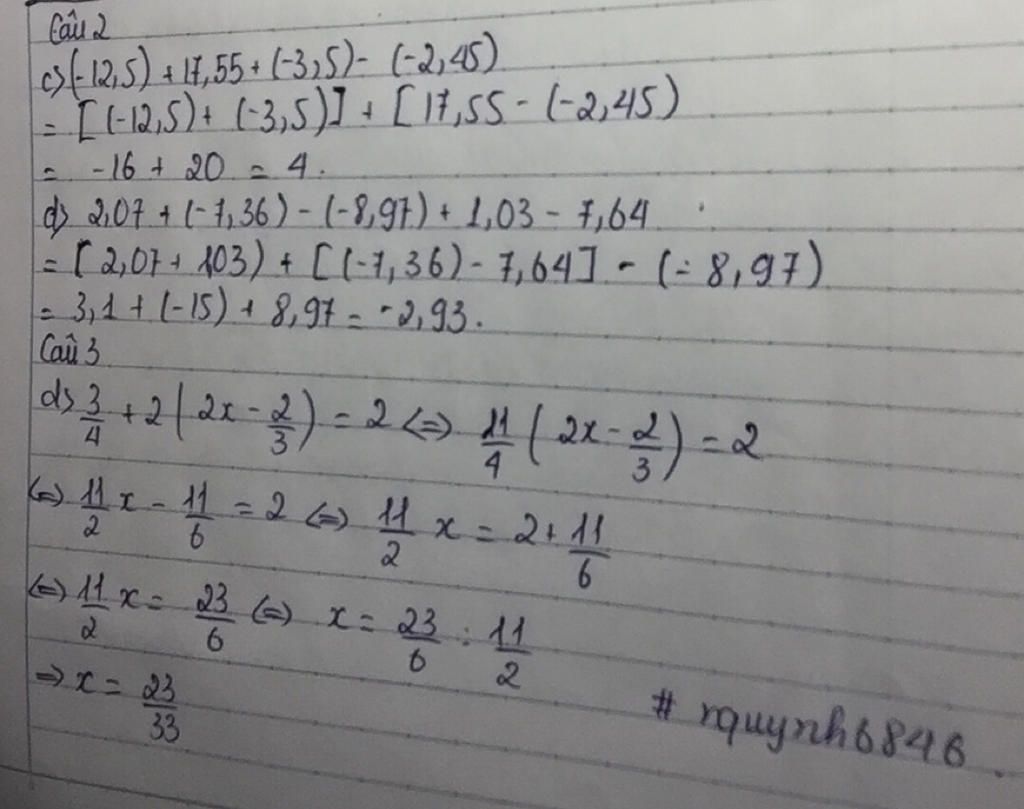 Câu 2
c) (-12,5) + 17,55 + (-3,5) - (-2,45)
= [(-12,5) + (-3,5)] + [17,55 - (-2,45)
= -16 + 20 = 4.
d) 2,07 + (-7,36) - (-8,97) + 1,03 - 7,64
= [2,07 + 1,03) + [(-7,36) - 7,64] - (-8,97)
= 3,1 + (-15) + 8,97 = -2,93.
Câu 3
d) 3/4 + 2(2x - 2/3) = 2 <=> 11/4 (2x - 2/3) = 2
<=> 11/2 x - 11/6 = 2 <=> 11/2 x = 2 + 11/6
<=> 11/2 x = 23/6 <=> x = 23/6 : 11/2
=> x = 23/33
# rquynh6846.